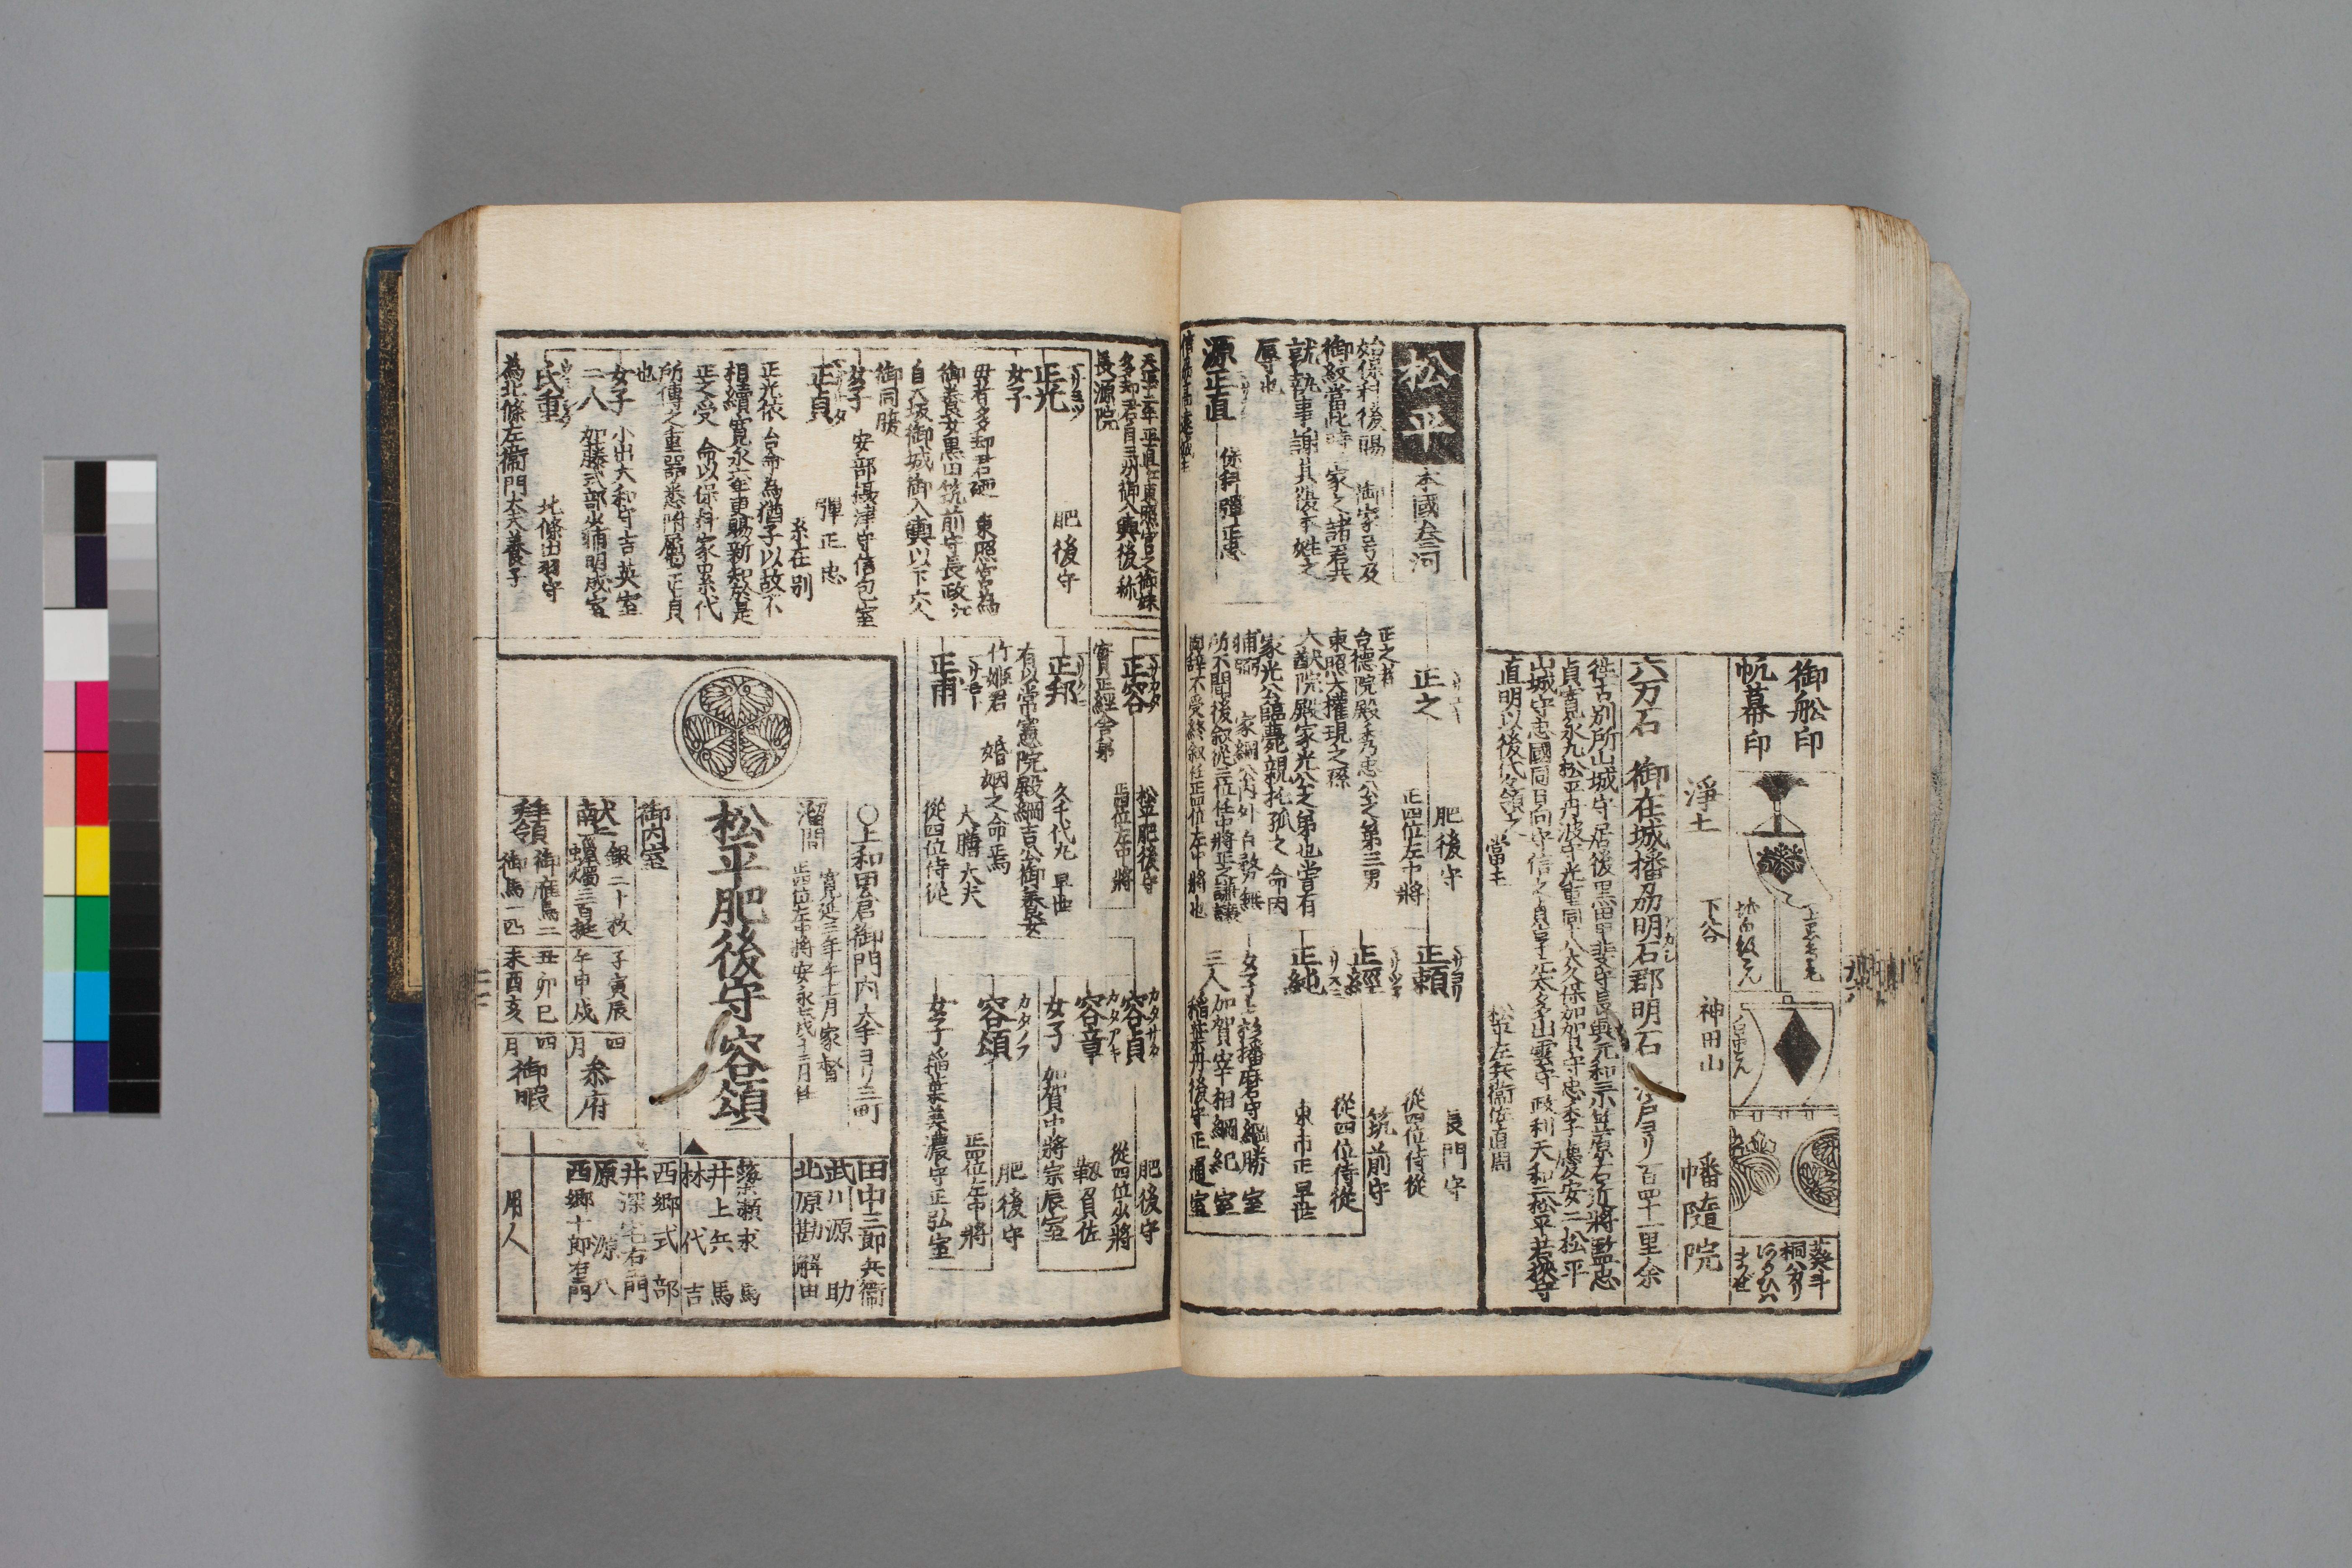 御舩印
帆幕印
葵斗
桐八カリ
浄土
下谷
神田山
幡隨院
六万石
御在城播刕明石郡明石
江戸ヨリ百四十一里余
往古別所山城守居後黒田甲斐守長興元和三小笠原右近將監忠
貞寛永九松平丹波守光重同八大久保加賀守忠季慶安二松平
山城守忠國同日向守信之本多出雲守政利天和二松平若狭守
直明以後代々領之
當主
松平左兵衞佐直周
松平
本國叁河
始保科後賜
御家号及
御紋當此時
家之諸君共
就執事謝其復本姓之
辱也
源正直
保科彈正忠
正之
肥後守
正四位左中將
正之者
台德院殿秀忠公之第三男
東照大權現之孫
大猷院殿家光公之弟也嘗有
家光公臨薨親托孤之
命内
輔弼
家綱公内外
自敎無
所不聞後叙從三位任中將正之謙譲
固辞不受終叙任正四位左中將也
正頼
長門守
從四位侍從
正經
筑前守
從四位侍從
正純
東市正早世
女子上杉播磨守綱勝室
三人
加賀宰相綱紀室
稲葉丹後守正通室
多却君自三州御入輿後称
長源院
正光
肥後守
女子
毋者多却君
東照宮為
御養女黒田筑前守長政江
自大坂御城御入輿以下六人
御同腹
女子
安部摂津守信包室
正貞
彈正忠
系在别
正光依
台命為猶子以故不
相續寛永年更賜新知於是
正之受
命以保科家累代
所傳之重器悉附屬正貞
也
女子
小出大和守吉英室
二人
加藤式部少輔明成室
氏重
北條出羽守
為北條左衞門大夫養子
正容
松平肥後守
正四位左中將
實正經舎弟
正邦
久千代丸
早世
有以常憲院殿綱吉公御養女
竹姫君
婚姻之命焉
正甫
大膳大夫
從四位侍從
容貞
肥後守
從四位少將
容章
靱負佐
女子
加賀中將宗辰室
容頌
肥後守
正四位左中將
女子
稲葉美濃守正弘室
〇上和田倉御門内大手ヨリ三町
溜間
寛延三年午十一月家督
松平肥後守容頌
御内室
献上
銀二十枚
蝋燭三百挺
子寅辰
午申戌
四月
叅府
拜領
御鷹鳥二
御馬一匹
丑卯巳
未酉亥
四月
御暇
田中三郎兵衞
武川源助
北原勘解由
簗瀬求馬
井上兵馬
林代吉
西郷式部
井深宅右衛門
原源八
西郷十郎右衛門
用人